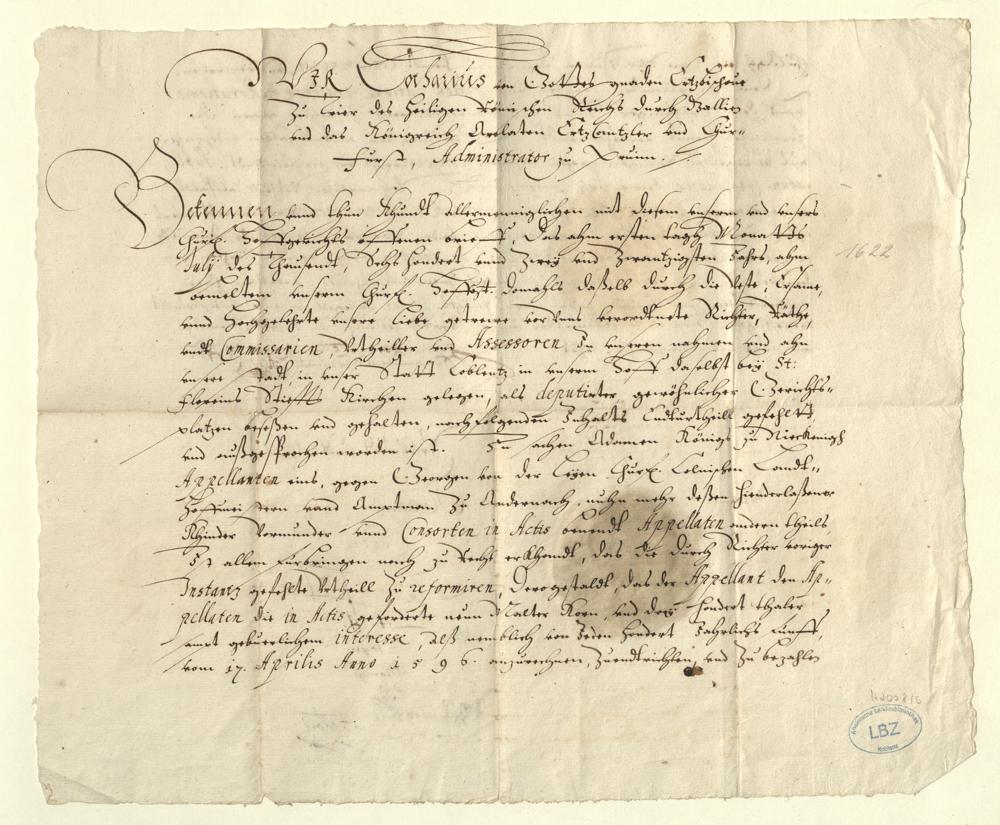 WIR Lotharius von Gottes gnaden Ertzbischoue
Zu Trier des Heiligen Römischen Reichs durch Gallien
vnd das Königreich Arelaten Ertzcantzler vnd Chur-
Fürst, Administrator zu Prüm.
Bekennen vnnd thun Khundt allermenniglichen mit diesem vnserm vnd vnsers
Churf. Hoffgerichts offenen brieff, Das ahm ersten tagh Monatts
Julij des Thausendt, Sechs hundert vnnd Zwey vnd Zwantzigsten Jahrs, ahm
1622
bemeltem vnserm Churf. Hoffger. domahls daselb durch die Veste, Ersame,
vnnd Hochgelehrte vnsere liebe getrewe vor vns verordtnete Richter, Räthe,
vndt Commissarien, Vrtheiller vnd Assessoren In vnserem nahmen vnd ahn
vnsere stadt, in vnser Statt Coblentz in vnserm Hoff daselbst bey St:
Floreins Stiffts Kirchen gelegen, als deputirter gewöhnlicher Gerichts-
platzen besessen vnd gehalten, nachfolgenden Inhalts Endturtheill gefehlt,
vnd außgesprochen worden ist. In sachen Adamen Königs zu Nieckenigh
Appellanten eins, gegen Georgen von der Leyen Churf. Colnischen Landt-
Hoffmeistern vnnd Amptman Zu Andernach, nuhn mehr deßen hinderlaßener
Khinder Vormünder vnnd Consorten in Actis benendt Appellaten andern theils,
Ist allem fürbringen nach zu Recht erkhandt, das die durch Richter voriger
Instantz gefehlte Vrtheill Zu reformiren, Dergestaldt, das der Appellant den Ap-
pellaten die in Actis geforderte neun Malter Korn, vnd drey hundert thaler
sampt gebuerlichem interesse, deß nemblich von Jeden hundert Jahrlichs funff,
vom 17. Aprilis Anno 1596. anzurechnen, Zuendtrichten, vnd Zu bezahlen
LBZ
Koblenz